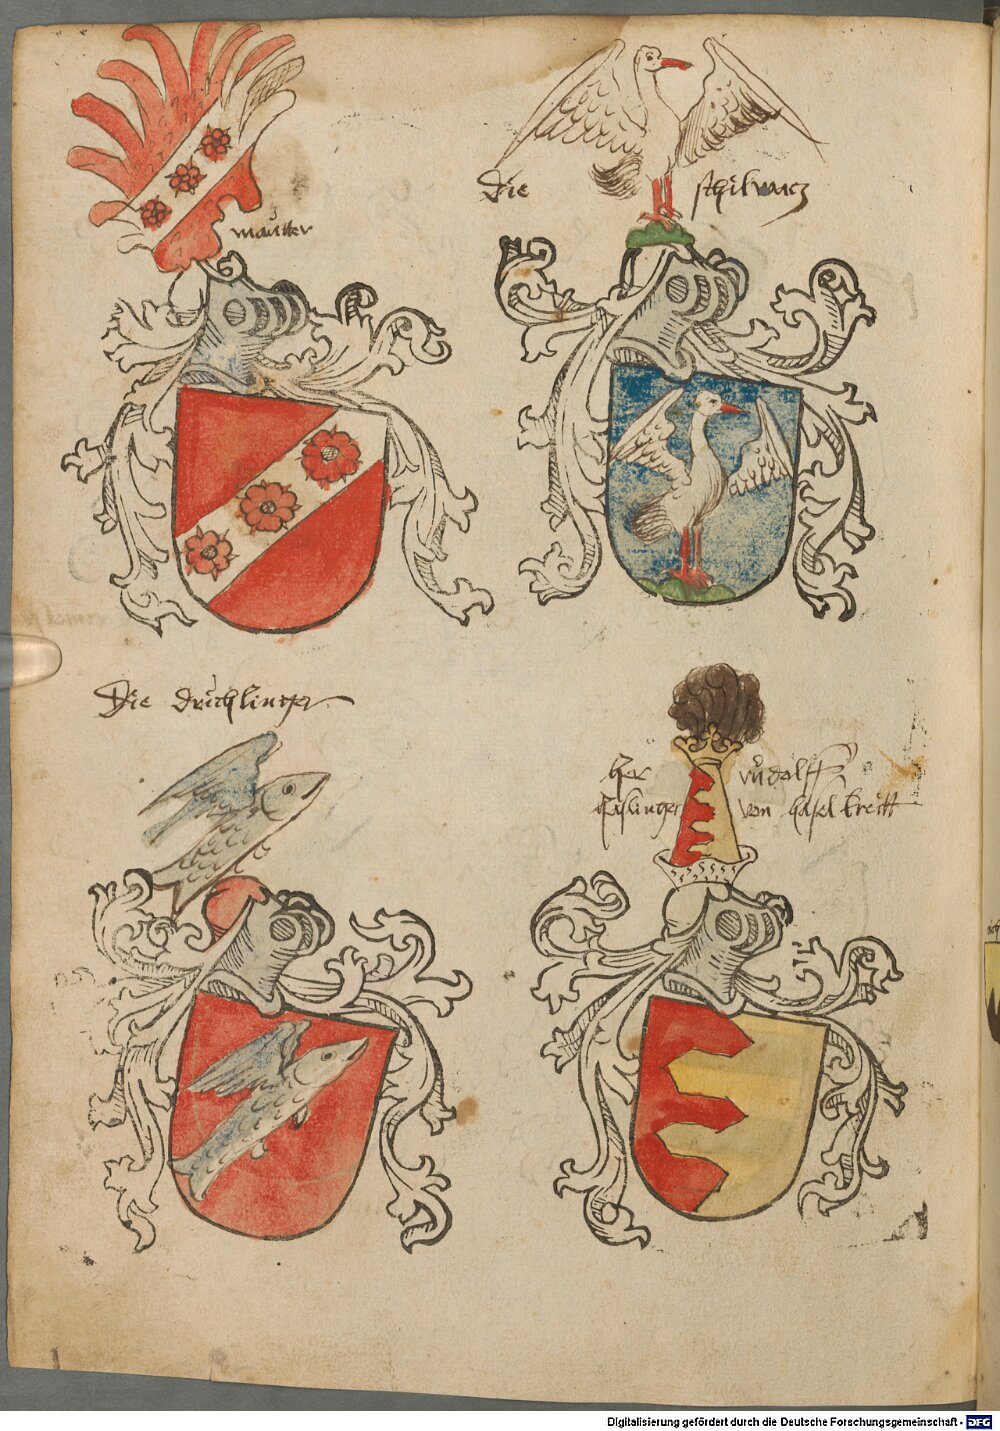 maůtter
Die schilwacz
Die drichlinger
Her růdolff
haslinger von haselkreitt
Digitalisierung gefördert durch die Deutsche Forschungsgemeinschaft - DFG